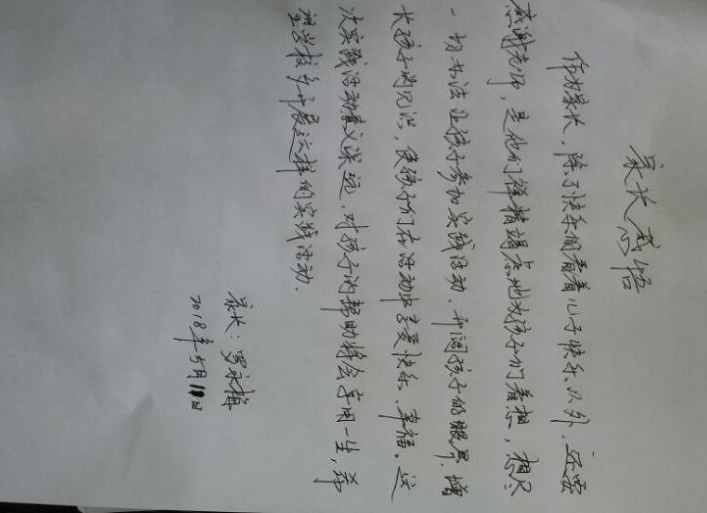 家长感悟
作为家长，除了快乐的看着儿子快乐以外，还要
感谢老师，是他们殚精竭虑地为孩子们着想，想尽
一切办法让孩子参加实践活动，开阔孩子的眼界，增
长孩子的见识，使孩子们在活动中享受快乐、幸福。这
次实践活动意义深远，对孩子的帮助将会享用一生，希
望学校多开展这样的实践活动.
家长：罗永梅
2018年5月11日